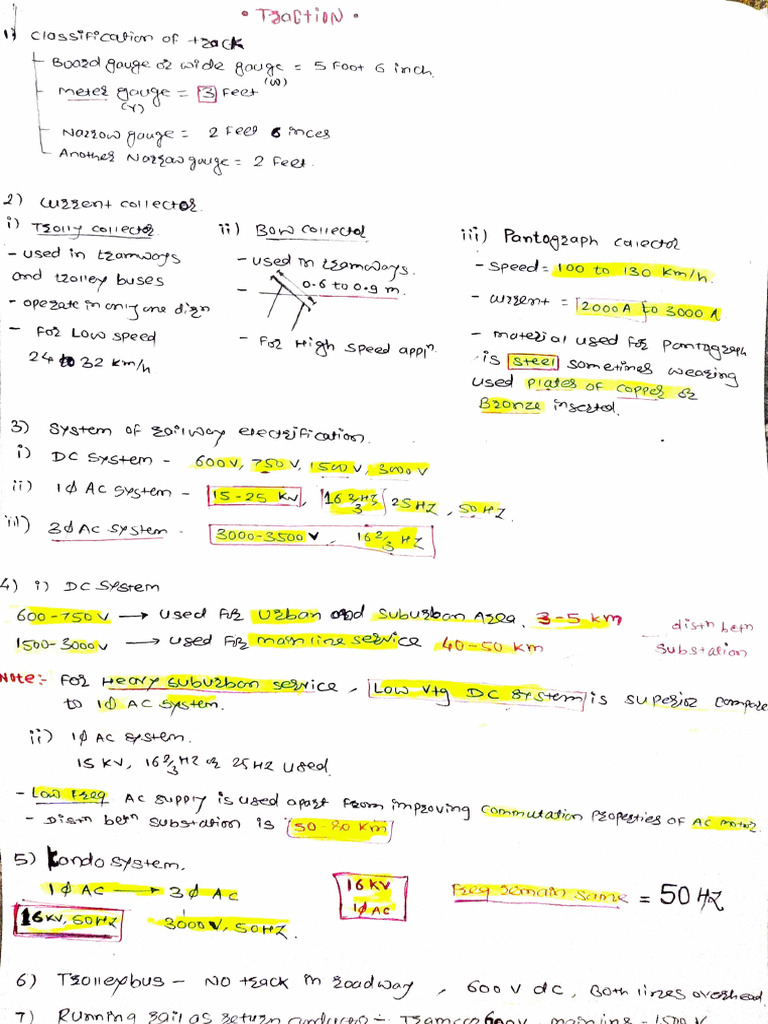 • TRACTION •
1) Classification of track
Board gauge or wide gauge = 5 Foot 6 inch.
(W)
Meter gauge = 3 Feet
(Y)
Narrow gauge = 2 Feet 6 inces
Another Narrow gauge = 2 Feet.
2) current collector.
i) Trolly collector
- used in tramways
and trolley buses
- operate in only one dirn
- For Low speed
24 to 32 km/h.
ii) Bow collector
- used in tramways.
- 0.6 to 0.9 m.
- For High speed appln.
iii) Pantograph calector
- speed = 100 to 130 km/h.
- current = 2000A to 3000 A
- material used for pantograph
is steel sometimes wearing
used plates of copper or
Bronze inserted.
3) System of railway electrification.
i) DC system - 600V, 750 V, 1500 V, 3000 V
ii) 1ϕ AC system - 15-25 KV, 16 2/3 HZ, 25 HZ, 50 HZ.
iii) 3ϕ AC system - 3000-3500 V, 16 2/3 HZ
4) i) DC system
600-750 V → used for urban and suburban Area. 3-5 km
1500-3000V → used for main line service 40-50 km
distn betn
substation
Note:- For Heavy suburban service, Low Vtg DC system is superior compare
to 1ϕ AC system.
ii) 1ϕ AC system.
15 KV, 16 2/3 HZ or 25 HZ used.
- Low Freq AC supply is used apart from improving commutation properties of AC motor.
- Distn betn substation is 50-80 km
5) Kondo system.
1ϕ AC → 3ϕ AC
16 KV, 50 HZ 3000 V, 50 HZ.
16 KV
1ϕ AC
Freq remain same = 50 HZ
6) Trolleybus - No track in roadway, 600 V dc, Both lines overhead.
7) Running rail as return